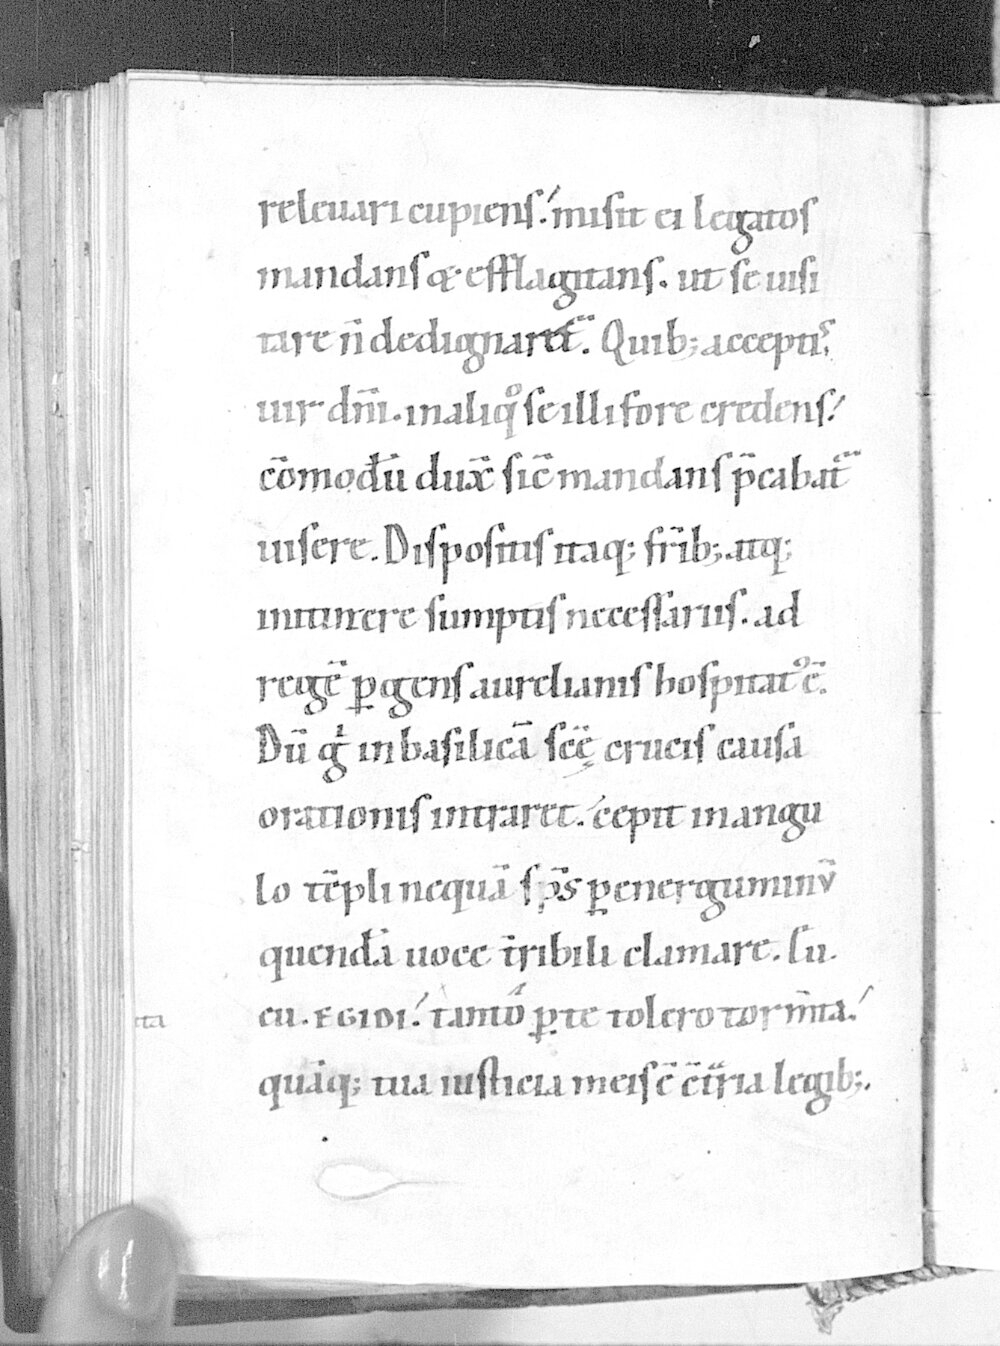 releuari cupiens. misit ei legatos
mandans & efflagitans. ut se uisi
tare n̄ dedignaret᷑. Quib; acceptis
uir dn̄i. in aliqͦ se illi fore credens
cōmodū dux̄ sic̄ mandans p̄cabat᷑
uisere. Dispositis itaq; fr̄ib; atq;
initinere sumptis necessariis. ad
regē ꝑgens aurelianis hospitatꝰ ē.
Dū gͥ in basilicā sc̄e crucis causa
orationis intraret. cepit in angu
lo tēpli nequā sp̄s ꝑ energuminū
quendā uoce t̄ribili clamare. Eu.
eu. EGIDI. tantō ꝑ te tolero torm̄ta
ta
quāq; tua iusticia meis ē c̄tͬria legib;.